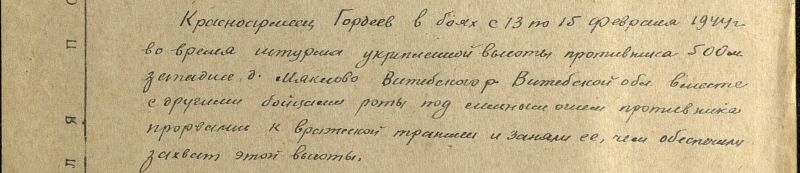 Красноармеец Гордеев в боях с 13 по 15 февраля 1944 г
во время штурма укрепленной высоты противника 500 м
западнее д. Мяклово Витебского р. Витебской обл вместе
с другими бойцами роты под сильным огнем противника
прорвались к вражеской траншеи и заняли ее, чем обеспечили
захват этой высоты.
Л Я П О